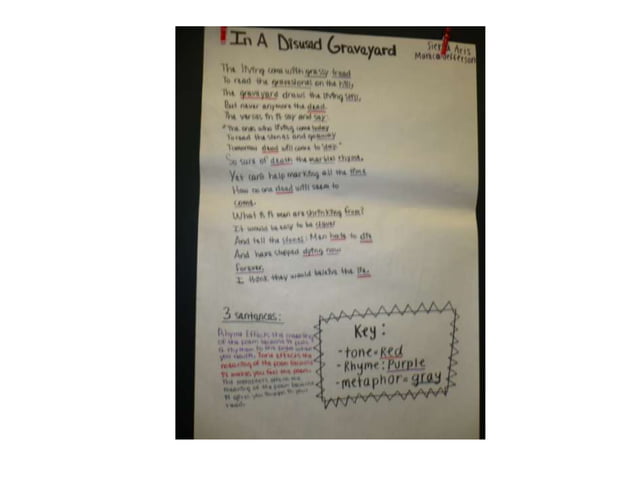 In A Disused Graveyard
Sierra Aris
The living come with grassy tread
To read the gravestones on the hill,
The graveyard draws the living still,
But never anymore the dead.
The verses in it say and say:
"The ones who living come today
To read the stones and goaway
Tomorrow dead will come to stay."
So sure of death the marbles rhyme,
Yet can't help marking all the time
How no one dead will seem to
come.
What is it men are shrinking from?
It would be easy to be clever
And tell the stones: Men hate to die
And have stopped dying now
Forever.
I think they would believe the lie.
3 sentences:
Rhyme Effects the meaning
of the poem because it puts
a rhythm to the poem when
you read it. Tone effects the
meaning of the poem because
it makes you feel the poem.
The metaphors affects the
meaning of the poem because
it gives you in your
head.
Key:
-tone=Red
-Rhyme: Purple
-metaphor=gray